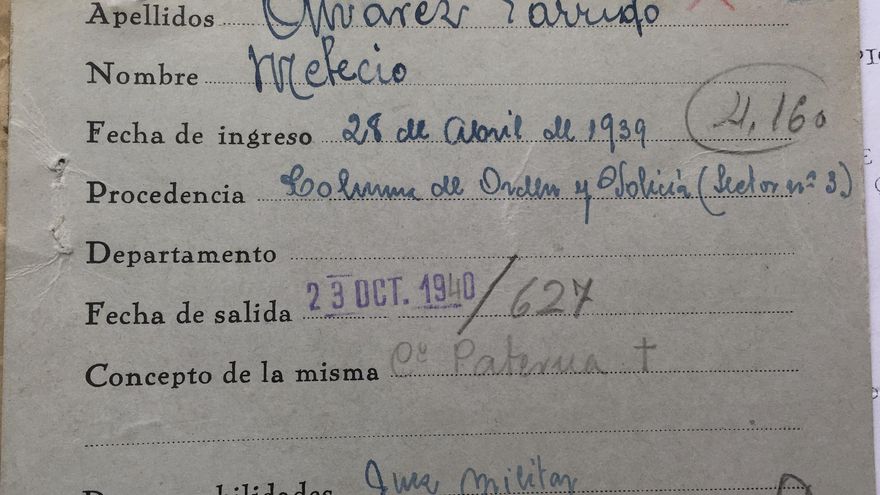 Apellidos Alvarez Garrido
Nombre Melecio
Fecha de ingreso 28 de Abril de 1939 4,160
Procedencia Columna de Orden y Policía (Sector nº 3)
Departamento
Fecha de salida 23 OCT. 1940 / 627
Concepto de la misma Paterna †
Juez militar